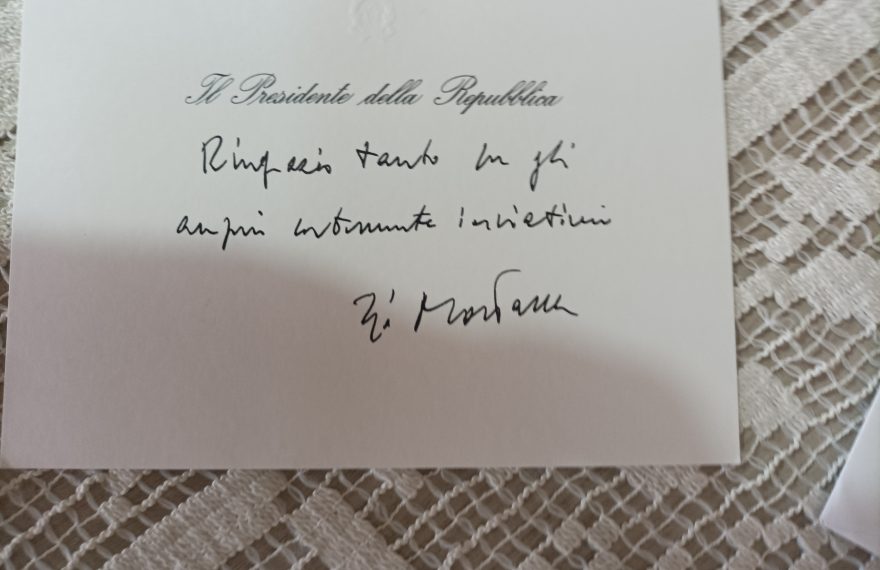 Il Presidente della Repubblica
Ringrazio tanto per gli
auguri cortesemente inviatimi